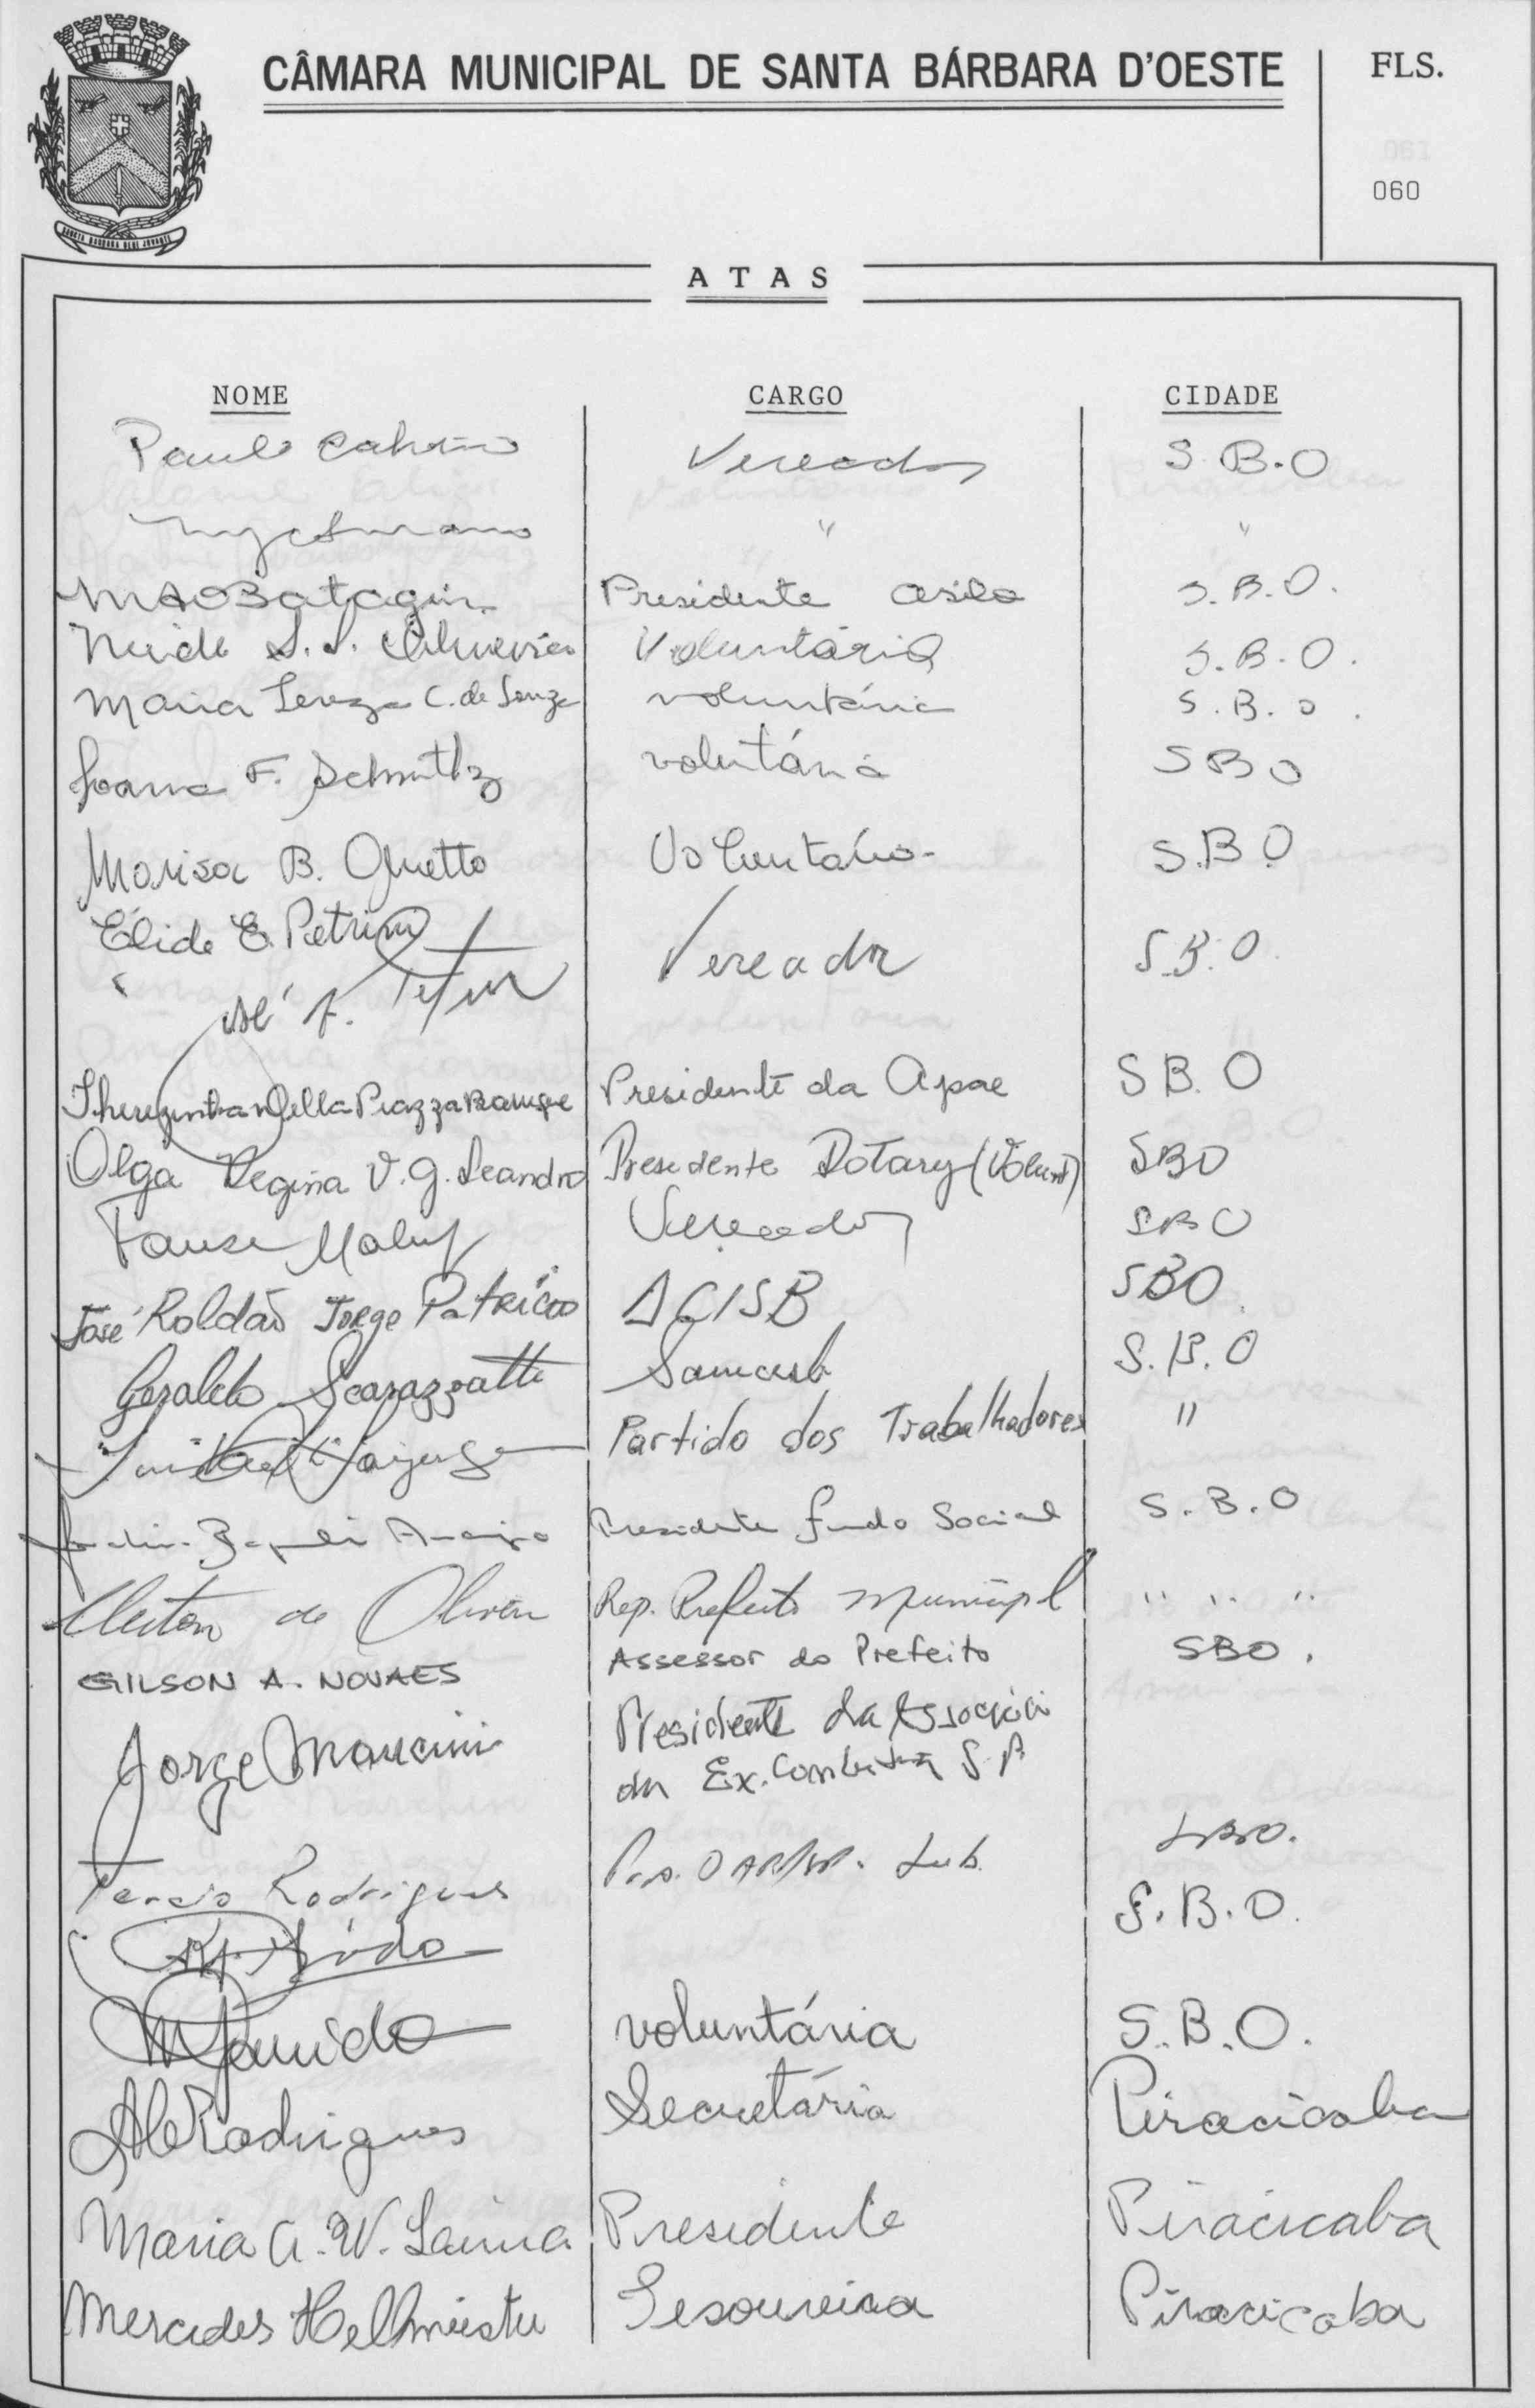 CÂMARA MUNICIPAL DE SANTA BÁRBARA D'OESTE
FLS.
060
ATAS
NOME CARGO CIDADE
Paulo Vereador S.B.O
" "
MAOBatagin Presidente asilo S.B.O.
Neide S.S. Voluntária S.B.O.
Maria Tereza C. de Souza voluntária S.B.O.
Joana F. Schmitlz voluntária SBO
Marisa B. Voluntário- S.B.O
Élide E. Petrini
José A. Vereador S.B.O.
Therezinha Della Piazza Presidente da Apae S B. O
Olga Regina V. G. Leandro Presidente Rotary (Volunt) SBO
Fause Maluf Vereador SBO
José Roldão Jorge Patrício ACISB SBO.
Geraldo Scarazzatti S.B.O
Partido dos Trabalhadores "
Araujo Presidente Fundo Social S.B.O
Cleiton de Oliveira Rep. Prefeito Municipal " " "
GILSON A. NOVAES Assessor do Prefeito SBO.
Jorge Mancini Presidente da
Ex.
SBO.
Tercio Rodrigues S.B.O.
voluntária S.B.O.
Rodrigues Secretária Piracicaba
Maria A. W. Presidente Piracicaba
Mercedes Hellmeister Tesoureira Piracicaba